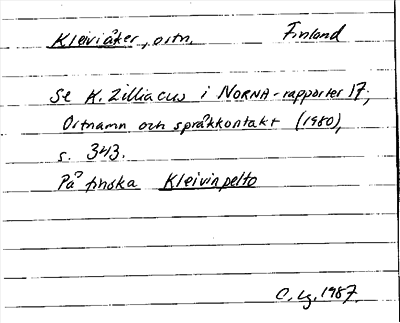 Kleiviåker, ortn. Finland
Se K. Zilliacus i NORNA-rapporter 17,
Ortnamn och språkkontakt (1980),
s. 343.
På finska Kleivinpelto
C. Lg. 1987.